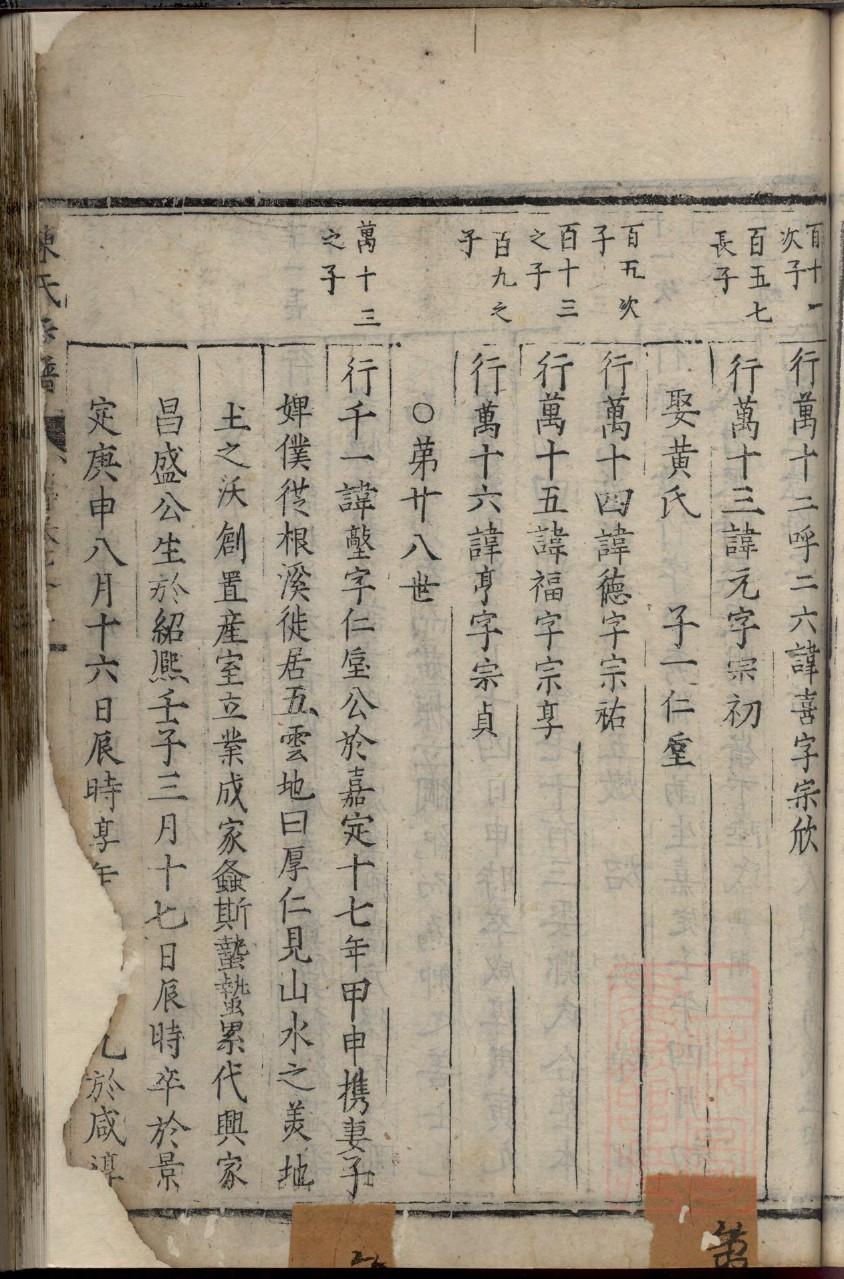 百十一次子
行萬十二呼二六諱喜字宗欣
百五七長子
行萬十三諱元字宗初
娶黄氏 子一仁堂
百五次子
行萬十四諱德字宗祐
百十三之子
行萬十五諱福字宗享
百九之子
行萬十六諱亨字宗貞
○第廿八世
萬十三之子
行千一諱壂字仁堂公於嘉定十七年甲申携妻子
婢僕從根溪徙居五雲地曰厚仁見山水之美地
土之沃創置産室立業成家螽斯蟄蟄累代興家
昌盛公生於紹熙壬子三月十七日辰時卒於景
定庚申八月十六日辰時享年 於咸淳
陳氏宗譜